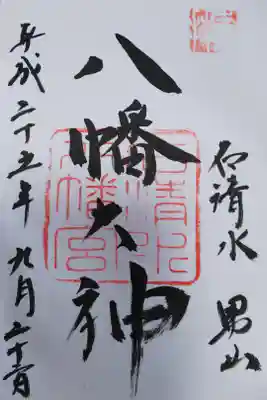 石清水 男山
八幡大神
石清水
八幡宮
平成二十五年 九月二十